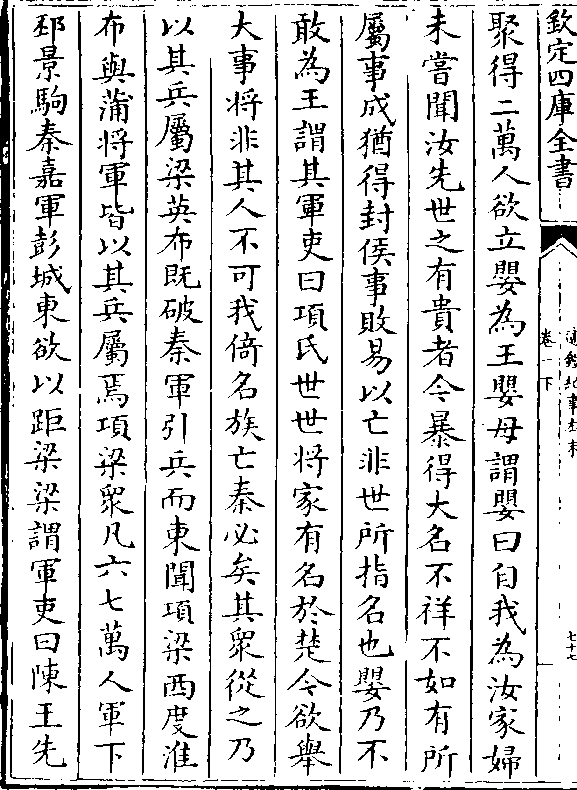 欽定四庫全書
通鑑紀事本末
卷一下
七十七
聚得二萬人欲立嬰為王嬰母謂嬰曰自我為汝家婦
未嘗聞汝先世之有貴者今暴得大名不祥不如有所
屬事成猶得封侯事敗易以亡非世所指名也嬰乃不
敢為王謂其軍吏曰項氏世世將家有名於楚今欲舉
大事將非其人不可我倚名族亡秦必矣其衆從之乃
以其兵屬梁英布既破秦軍引兵而東聞項梁西度淮
布與蒲將軍皆以其兵屬焉項梁衆凡六七萬人軍下
邳景駒秦嘉軍彭城東欲以距梁梁謂軍吏曰陳王先